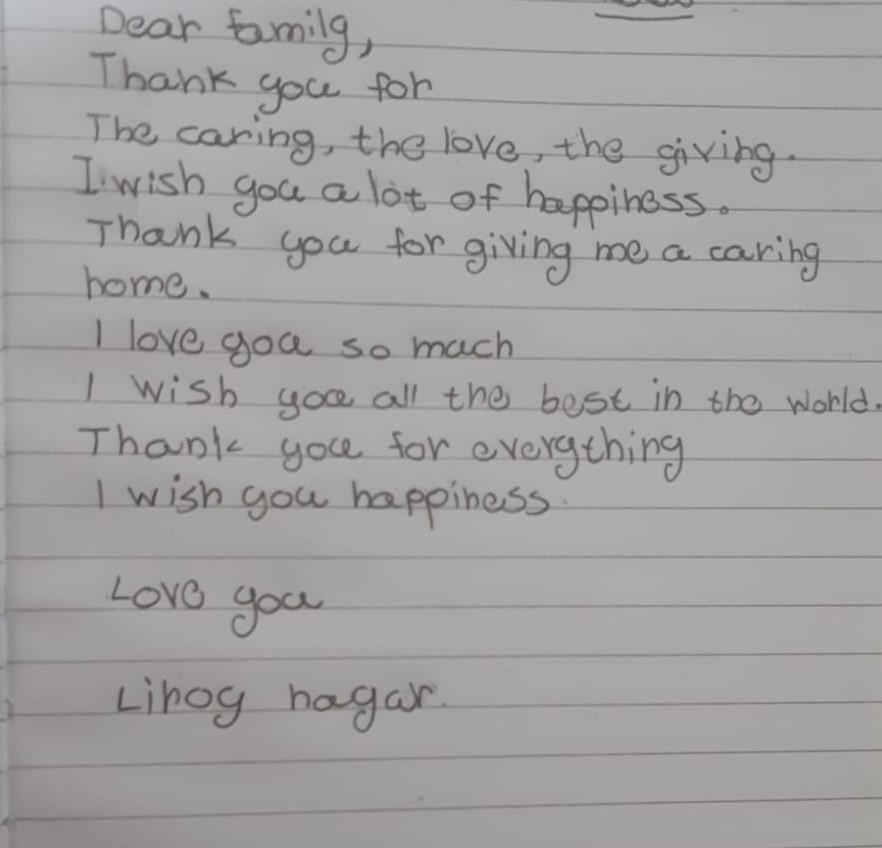 Dear family,
Thank you for
The caring, the love, the giving.
I wish you a lot of happiness.
Thank you for giving me a caring
home.
I love you so much
I wish you all the best in the world.
Thank you for everything
I wish you happiness.
Love you
Linoy nagar.